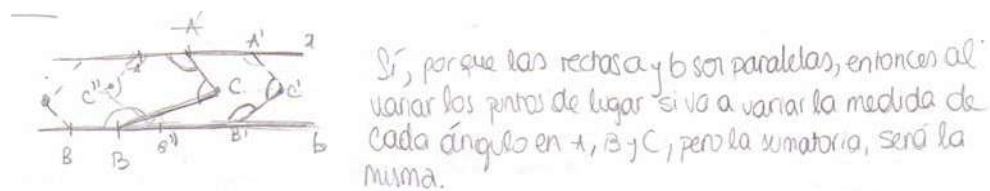 A' A' a
A
C'' C C'
B B B'' B' b
Sí, porque las rectas a y b son paralelas, entonces al
variar los puntos de lugar si va a variar la medida de
cada ángulo en A, B y C, pero la sumatoria, será la
misma.